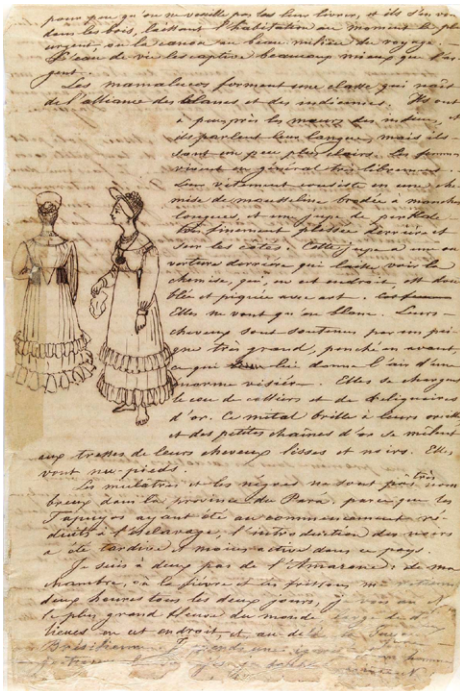 pour peu qu'on ne veuille pas les leur livrer, et ils s'en vont
dans les bois, laissant l'habitation au moment le plus
urgent, ou le canot au beau milieu du voyage. —
L'eau de vie les captive beaucoup mieux que l'ar-
gent.
Les mamalucos forment une classe qui naît
de l'alliance des blancs et des indiennes. Ils ont
à peu près les mœurs des indiens, et
ils parlent leur langue, mais ils
sont un peu plus clairs. Les femmes
vivent en général très librement.
Leur vêtement consiste en une che-
mise de mousseline brodée a manches
longues, et un jupe de
finement plissée derrière et
sur les côtés. Cette jupe a une ou-
verture derrière qui laisse voir la
chemise, qui, en cet endroit, est
bleu et piquée avec art.
Elles ne vont qu'en blanc. Leurs
cheveux sont soutenus par un pei-
gne très grand, penché en avant,
ce qui leur donne l'air d'un
visière. Elles se chargent
le cou de colliers et de reliquaires
d'or. Ce métal brille à leurs oreilles
et des petites chaînes d'or se mêlent
aux tresses de leurs cheveux lisses et noirs. Elles
vont nu-pieds.
Les mulâtres et les nègres ne sont pas très nom
breux dans la province du Pará, parce que les
Tapuyos ayant été au commencement ré-
duits à l'esclavage, l'introduction des noirs
a été tardive et moins active dans ce pays.
Je suis à deux pas de l'Amazone; de ma
chambre, où la fièvre et les frissons me retiennent
deux heures tous les deux jours, je vois
le plus grand fleuve du monde large de
lieues en cet endroit et au delà